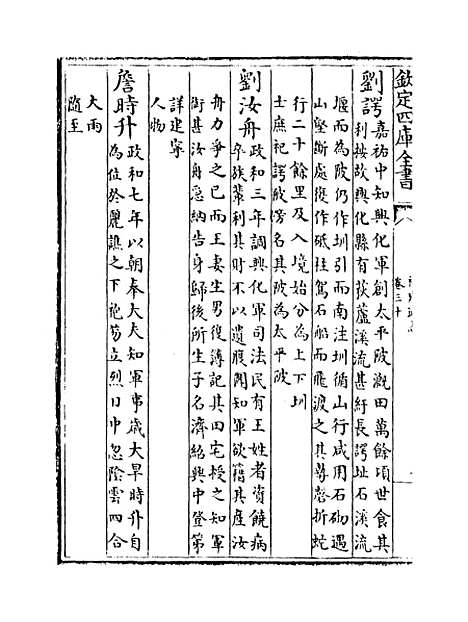 欽定四庫全書
卷三十
劉諤嘉祐中知興化軍創太平陂溉田萬餘頃世食其
利按故興化縣有荻蘆溪流甚紆長諤址石溪流
堰而為陂仍作圳引而南注圳循山行咸用石砌遇
山壑斷處復作砥柱駕石船而飛渡之其蕚磬折蛇
行二十餘里及入境始分為上下圳
士庶祀諤陂傍名其陂為太平陂
劉汝舟政和三年調興化軍司法民有王姓者資饒病
卒族輩利其財不以遺腹聞知軍欲籍其產汝
舟力爭之已而王妻生男復簿記其田宅授之知軍
銜甚汝舟急納告身歸後所生子名濟紹興中登第
詳建寧
人物
詹時升政和七年以朝奉大夫知軍事歲大旱時升自
為位於麗譙之下袍笏立烈日中忽陰雲四合
大雨
隨至